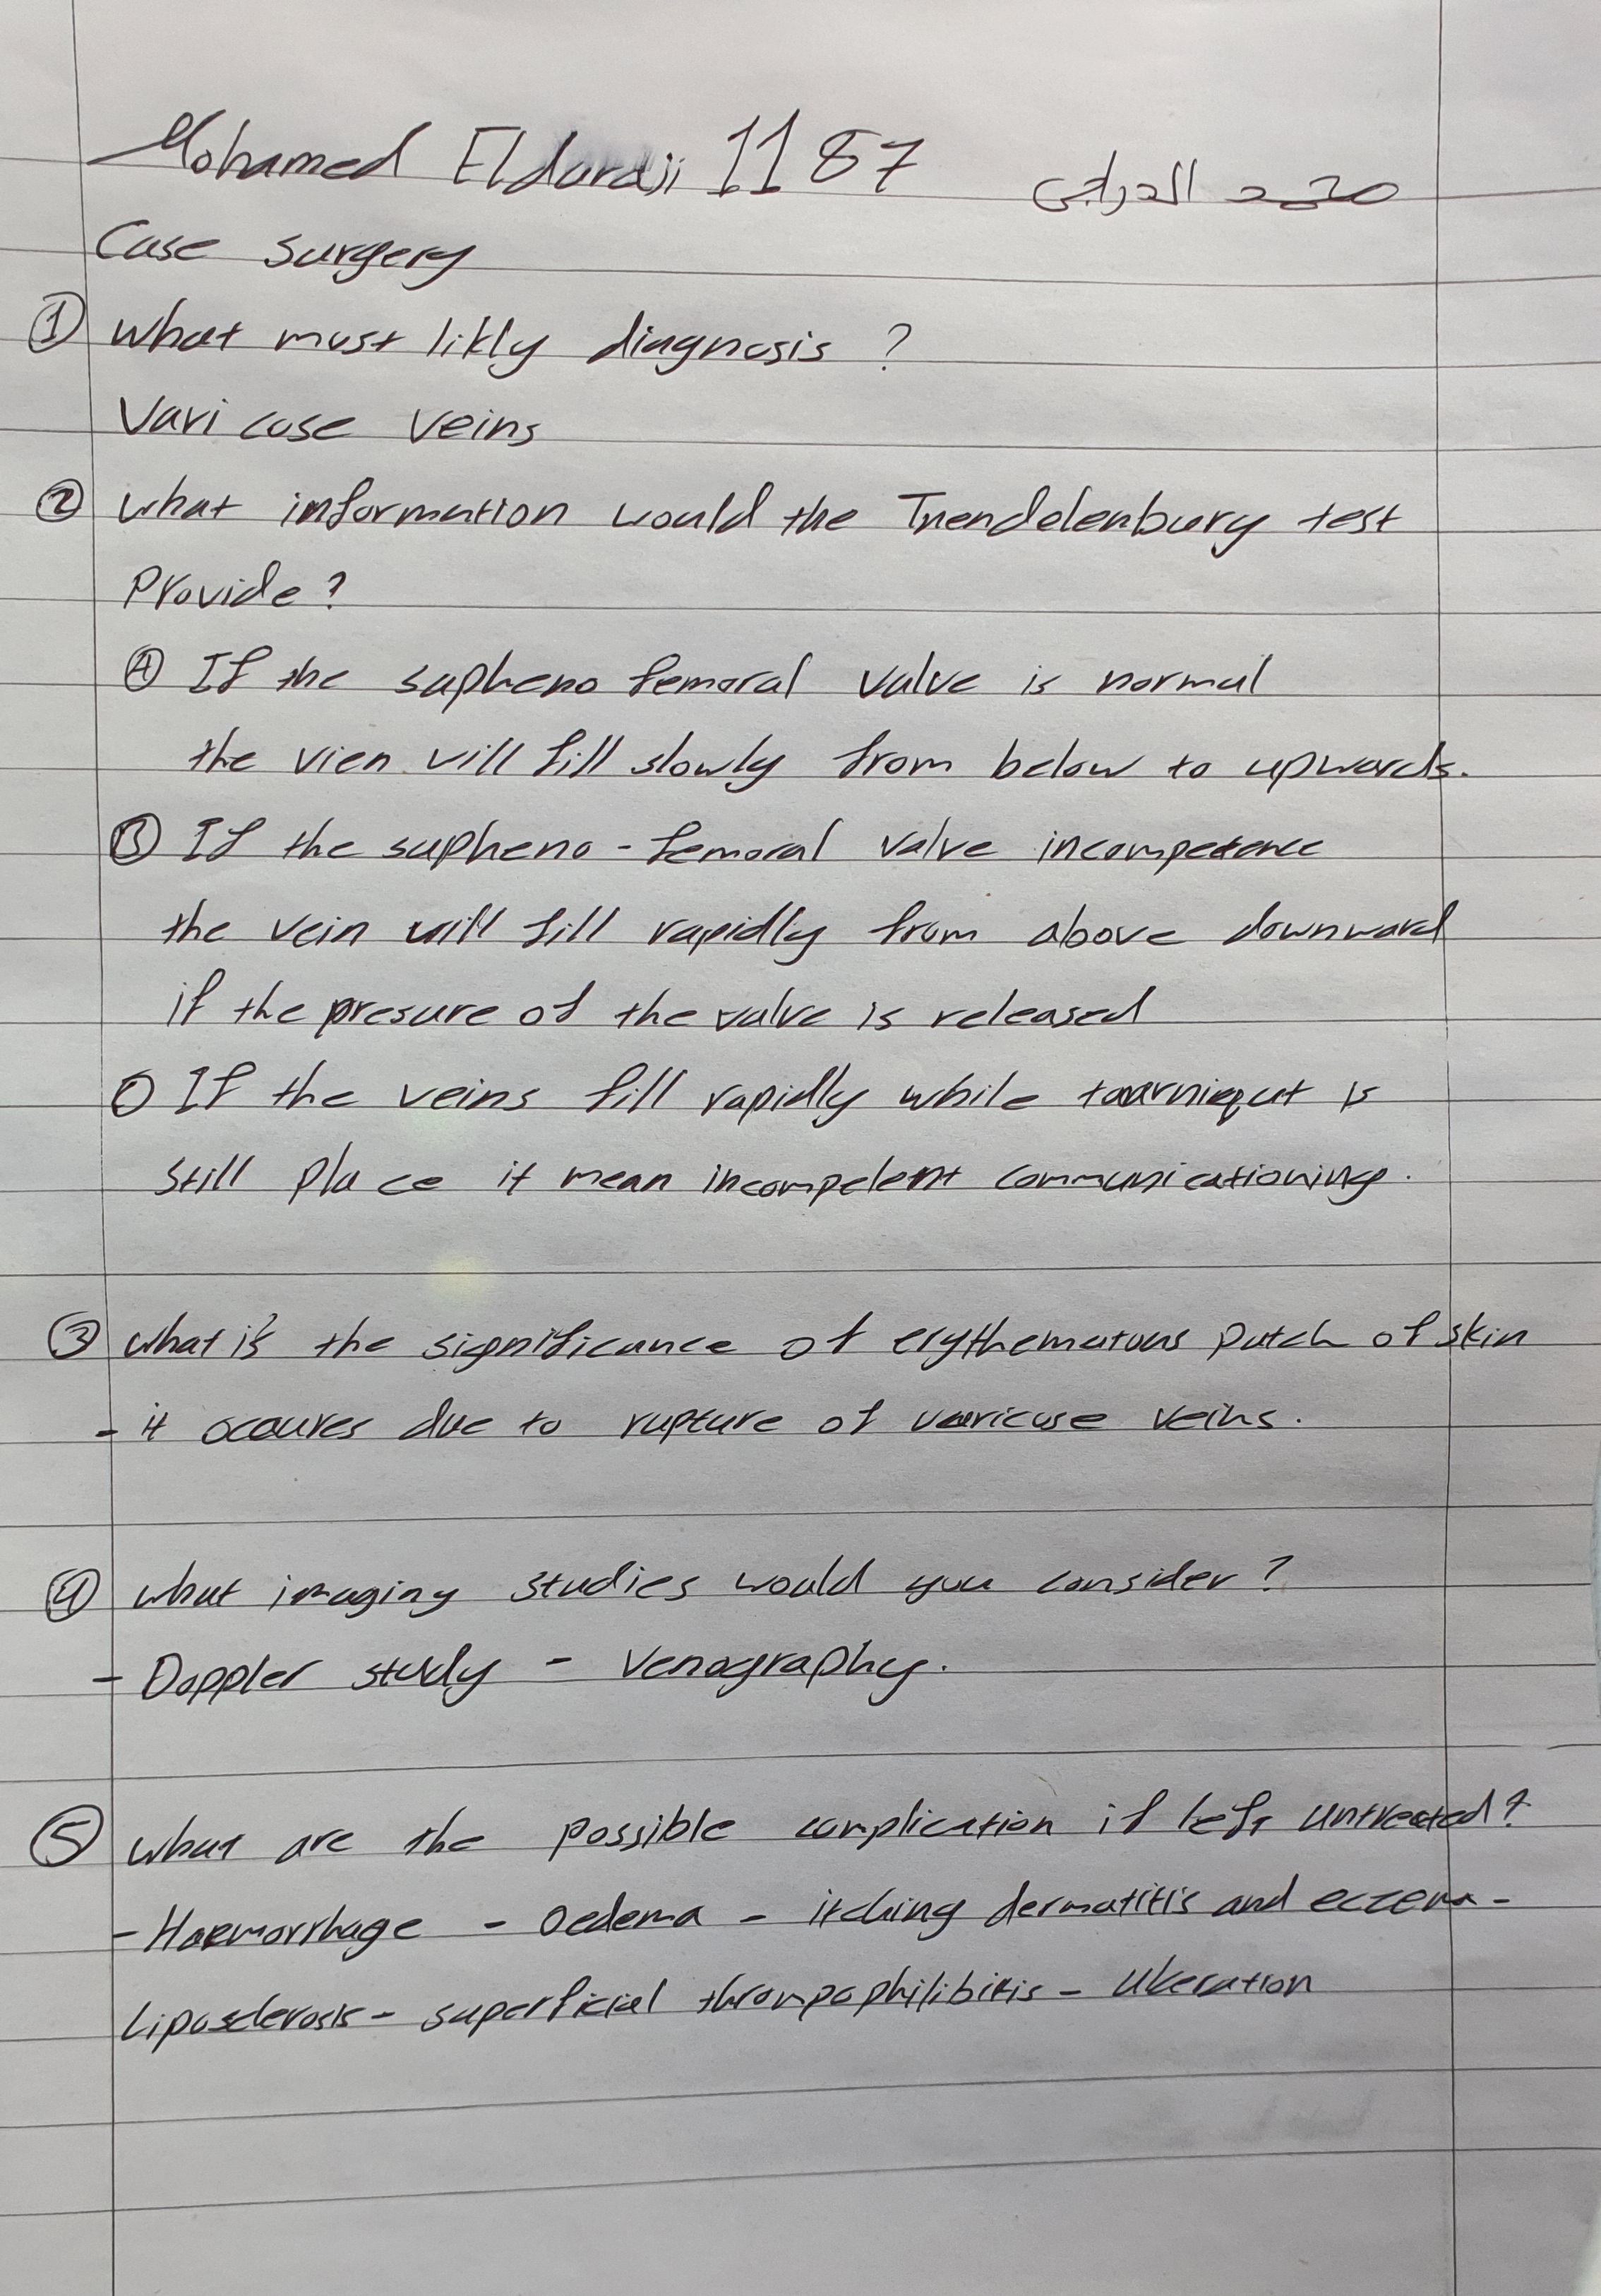 Mohamed Eldaraji 1187 محمد الدراجي
Case surgery
① What most likly diagnosis ?
Varicose veins
② what information would the Trendelenburg test
Provide?
Ⓐ If the sapheno femoral valve is normal
the vien vill fill slowly from below to upwards.
Ⓑ If the sapheno - femoral valve incompetence
the vein will fill rapidly from above downward
if the presure of the valve is released
If the veins fill rapidly while tourniqut is
still place it mean incompetent communicationing.
③ what is the significance of erythematous patch of skin
- it occures due to rupture of varicose veins.
④ what imaging studies would you consider?
- Doppler study - Venography.
⑤ what are the possible complication if left untreated?
- Haemorrhage - Oedema - itching dermatitis and eczema -
Liposclerosis - superficial thrompophilibitis - Ulceration